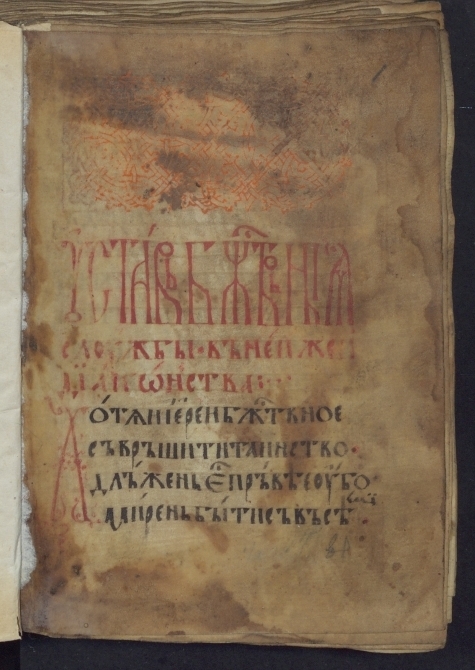 Уста́въ бж҃ствєнїѧ
слоужбы · въ не́иже
дїаконства
Хотѧи і҆ерей бж҃тъвное
съвръшити таинство ·
длъ́жень є҆́ прь́вѣе оу҆́бо
миренъ бы́ти съ всѣ